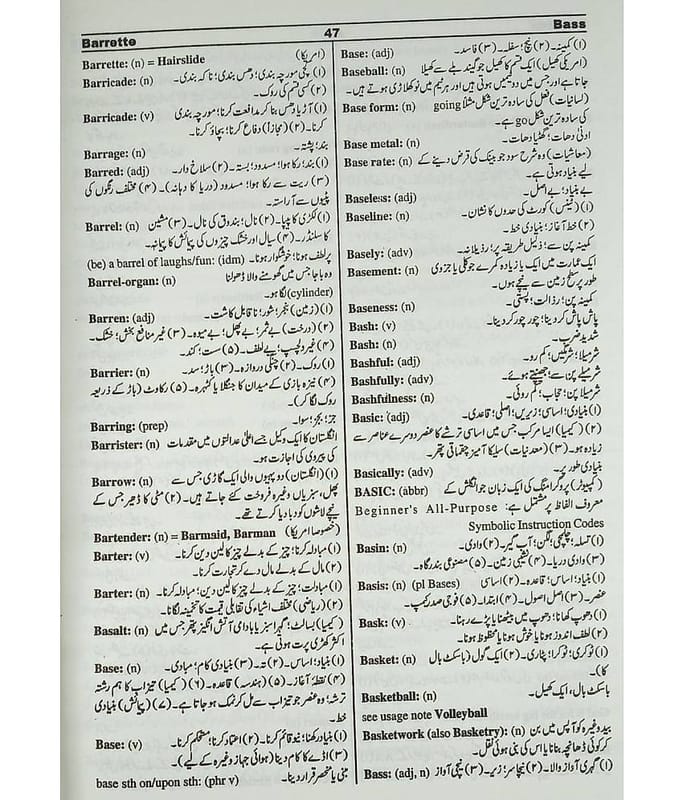 Barrette
47
Bass
Barrette: (n) = Hairslide (امریکا)
Barricade: (n) (۱) کچی مورچہ بندی؛ دھس بندی؛ ناکہ بندی۔
(۲) کسی قسم کی روک۔
Barricade: (v) (۱) آڑ یا دھس بنا کر مدافعت کرنا؛ مورچہ بندی
کرنا۔ (۲) (مجازاً) دفاع کرنا؛ بچاؤ کرنا۔
Barrage: (n) بند؛ پشتہ۔
Barred: (adj) (۱) بند؛ رکا ہوا؛ مسدود؛ بستہ۔ (۲) سلاخ دار۔
(۳) ریت سے رکا ہوا؛ مسدود (دریا کا دہانہ)۔ (۴) مختلف رنگوں کی
پٹیوں سے آراستہ۔
Barrel: (n) (۱) لکڑی کا پیپا۔ (۲) نال؛ بندوق کی نال۔ (۳) مشین
کا سلنڈر۔ (۴) سیال اور خشک چیزوں کی پیمائش کا پیمانہ۔
(be) a barrel of laughs/fun: (idm) پرلطف ہونا؛ خوشگوار ہونا۔
Barrel-organ: (n) وہ باجا جس میں گھومنے والا ڈھولنا
(cylinder) لگا ہو۔
Barren: (adj) (۱) (زمین) بنجر؛ شور؛ ناقابل کاشت۔
(۲) (درخت) بے ثمر؛ بے پھل؛ بے میوہ۔ (۳) غیر منافع بخش؛ خشک۔
(۴) غیر دلچسپ؛ بے لطف۔ (۵) ست؛ کند۔
Barrier: (n) (۱) روک۔ (۲) چنگی دروازہ۔ (۳) باڑ؛ سد۔
(۴) نیزہ بازی کے میدان کا جنگلا یا کٹہرہ۔ (۵) رکاوٹ (باڑ کے ذریعہ
روک لگا کر)۔
Barring: (prep) جز؛ بجز؛ سوا۔
Barrister: (n) انگلستان کا ایک وکیل جسے اعلیٰ عدالتوں میں مقدمات
کی پیروی کی اجازت ہو۔
Barrow: (n) (۱) (انگلستان) دو پہیوں والی ایک گاڑی جس سے
پھل، سبزیاں وغیرہ فروخت کئے جاتے ہیں۔ (۲) مٹی کا ڈھیر جس کے
نیچے لاشوں کو دبا دیا کرتے تھے۔
Bartender: (n) = Barmaid, Barman (خصوصاً امریکا)
Barter: (v) (۱) مبادلہ کرنا؛ چیز کے بدلے چیز کا لین دین کرنا۔
(۲) مال کے بدلے مال دے کر تجارت کرنا۔
Barter: (n) (۱) مبادلت؛ چیز کے بدلے چیز کا لین دین؛ مبادلہ کرنا۔
(۲) (ریاضی) مختلف اشیاء کی تقابلی قیمت کا تخمینہ لگانا۔
Basalt: (n) (کیمیا) بسالٹ؛ گہرا سبز یا بادامی آتش انگیز پتھر جس میں
اکثر کھڑی پرت ہوتی ہے۔
Base: (n) (۱) بنیاد؛ اساس۔ (۲) تہ۔ (۳) بنیادی کام؛ مبادی۔
(۴) نقطۂ آغاز۔ (۵) (ہندسہ) قاعدہ۔ (۶) (کیمیا) تیزاب کا ہم رشتہ
ترشہ؛ وہ عنصر جو تیزاب سے مل کر نمک ہو جاتا ہے۔ (۷) (پیمائش) بنیادی
خط۔
Base: (v) (۱) بنیاد رکھنا؛ نیو قائم کرنا۔ (۲) اعتماد کرنا؛ مستحکم کرنا۔
(۳) اڈے کا کام دینا (ہوائی جہاز وغیرہ کے لیے)۔
base sth on/upon sth: (phr v) مبنی یا منحصر قرار دینا۔
Base: (adj) (۱) کمینہ۔ (۲) نیچ؛ سفلہ۔ (۳) فاسد۔
Baseball: (n) (امریکی کھیل) ایک قسم کا کھیل جو گیند بلے سے کھیلا
جاتا ہے اور جس میں دو ٹیمیں ہوتی ہیں اور ہر ٹیم میں نو کھلاڑی ہوتے ہیں۔
Base form: (n) (لسانیات) فعل کی سادہ ترین شکل مثلاً going
کی سادہ ترین شکل go ہے۔
Base metal: (n) ادنیٰ دھات؛ گھٹیا دھات۔
Base rate: (n) (معاشیات) وہ شرح سود جو بینک کی قرض دینے کے
لیے بنیاد ہوتی ہے۔
Baseless: (adj) بے بنیاد؛ بے اصل۔
Baseline: (n) (۱) (ٹینس) کورٹ کی حدوں کا نشان۔
(۲) خط آغاز؛ بنیادی خط۔
Basely: (adv) کمینہ پن سے؛ ذلیل طریقہ پر؛ رذیلانہ۔
Basement: (n) ایک عمارت میں ایک یا زیادہ کمرے جو کلی یا جزوی
طور پر سطح زمین سے نیچے ہوں۔
Baseness: (n) کمینہ پن؛ رذالت؛ پستی۔
Bash: (v) پاش پاش کر دینا؛ چور چور کر دینا۔
Bash: (n) شدید ضرب۔
Bashful: (adj) شرمیلا؛ شرمگیں؛ کم رو۔
Bashfully: (adv) شرمیلے پن سے؛ جھینپتے ہوئے۔
Bashfulness: (n) شرمیلا پن؛ حجاب؛ کم روئی۔
Basic: (adj) (۱) بنیادی؛ اساسی؛ زیریں؛ اصلی؛ قاعدی۔
(۲) (کیمیا) ایسا مرکب جس میں اساسی ترشے کا عنصر دوسرے عناصر سے
زیادہ ہو۔ (۳) (معدنیات) سلیکا آمیز چقماقی پتھر۔
Basically: (adv) بنیادی طور پر۔
BASIC: (abbr) (کمپیوٹر) پروگرامنگ کی ایک زبان جو انگلش کے
معروف الفاظ پر مشتمل ہے: Beginner's All-Purpose
Symbolic Instruction Codes
Basin: (n) (۱) تسلہ؛ چلمچی؛ لگن؛ آب گیر۔ (۲) وادی۔
(۳) وادی دریا۔ (۴) نشیبی زمین۔ (۵) مصنوعی بندرگاہ۔
Basis: (n) (pl Bases) (۱) بنیاد؛ اساس؛ قاعدہ۔ (۲) اساسی
عنصر۔ (۳) اصل اصول۔ (۴) ابتدا۔ (۵) فوجی صدر کیمپ۔
Bask: (v) (۱) دھوپ کھانا؛ دھوپ میں بیٹھنا یا پڑے رہنا۔
(۲) لطف اندوز ہونا یا خوش ہونا یا محظوظ ہونا۔
Basket: (n) (۱) ٹوکری؛ ٹوکرا؛ پٹاری۔ (۲) ایک گول (باسکٹ بال
کا)۔
Basketball: (n) باسکٹ بال، ایک کھیل۔
see usage note Volleyball
Basketwork (also Basketry): (n) بید وغیرہ کو آپس میں بن
کر کوئی ڈھانچہ بنانا یا اس کی بنی ہوئی نقل۔
Bass: (adj, n) (۱) گہری آواز والا۔ (۲) نیچا سر؛ زیر۔ (۳) نیچی آواز